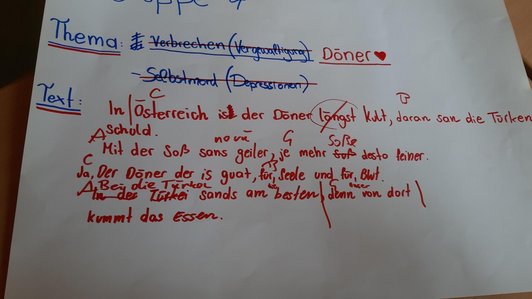 Gruppe 4
Thema: Verbrechen (Vergewaltigung) Döner ♥
- Selbstmord (Depressionen)
C D
Text: In Österreich ist der Döner längst Kult, daran san die Türken
Schuld.
A noxü G Soße
Mit der Soß sans geiler, je mehr Soß desto feiner.
C
Ja, Der Döner der is guat, für, Seele und für, Blut.
A Bei die Türken
In der Türkei sands am besten, denn von dort
kummt das Essen.